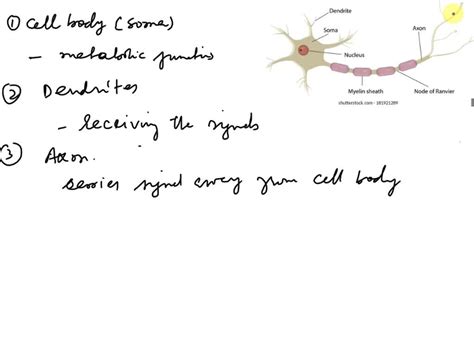 ① Cell body (Soma)
- metabolic functions
② Dendrites
- receiving the signals
③ Axon.
carries signal away from cell body
Dendrite
Soma
Axon
Nucleus
Myelin sheath
Node of Ranvier
shutterstock.com · 181921289